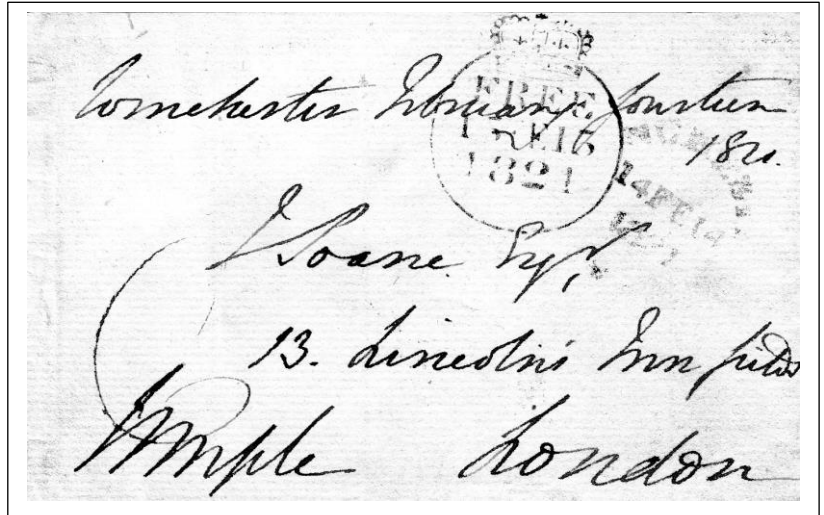 Winchester February fourteen
1821.
FREE
FE 15
1821
14 FE 14
J Soane Esqr,
13. Lincoln's Inn fields
London